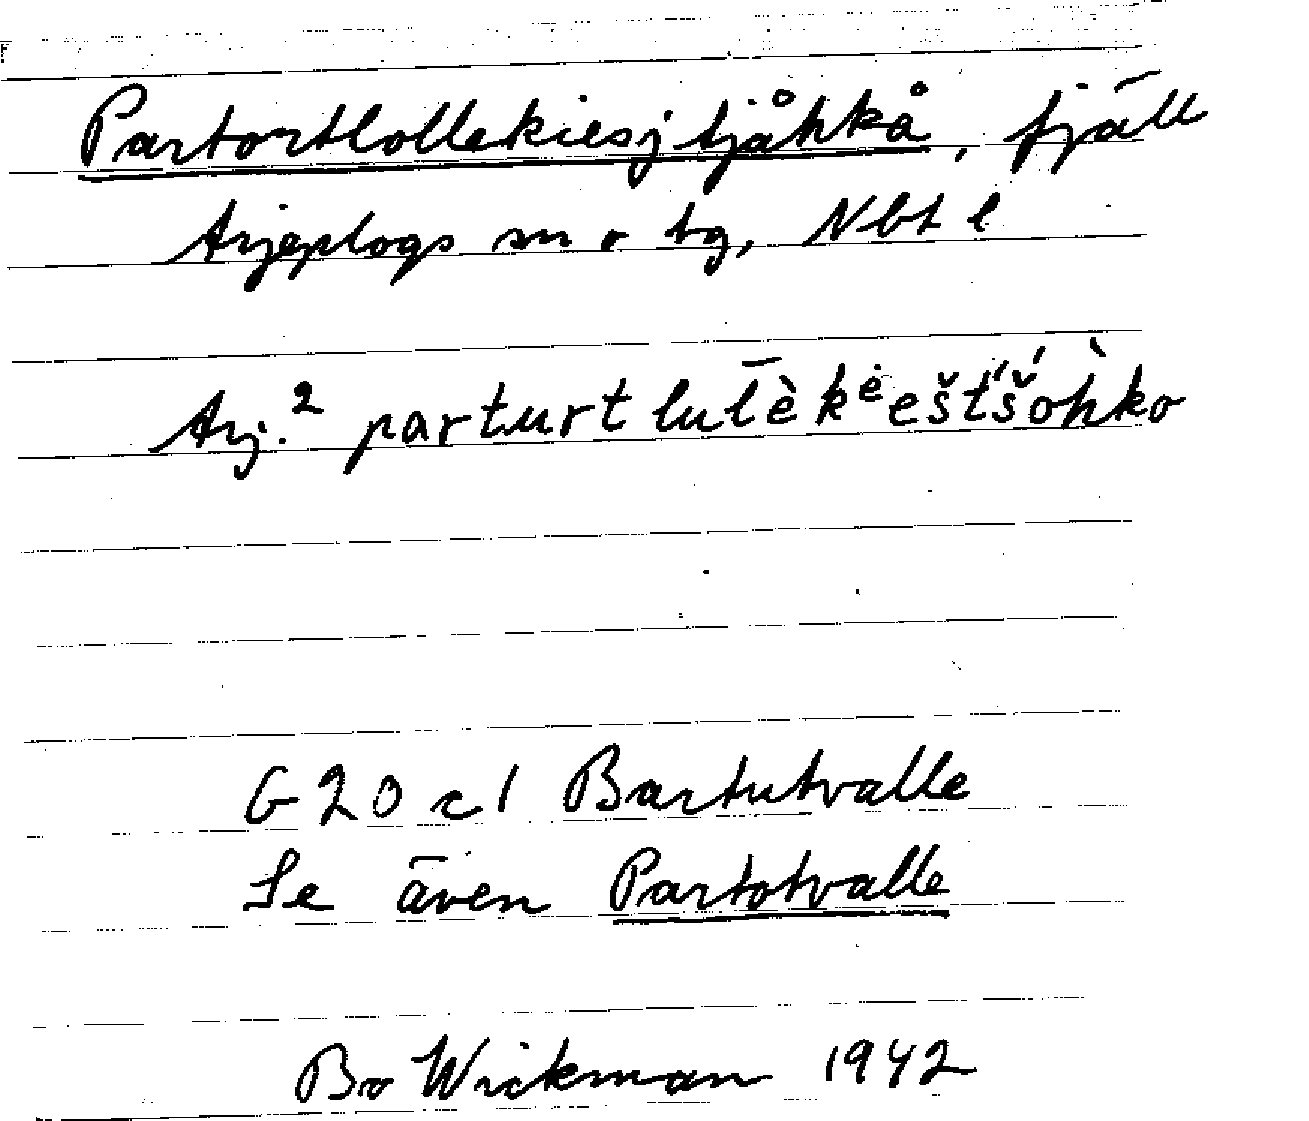 Partortlollekiesjtjåhkå, fjäll
Arjeplogs sn o tg, Nbt l
Arj.² parturtlul̄èkᵉ̇ešt́š́oh̀ko
G 20 c 1 Bartutvalle
Se även Partotvalle
Bo Wickman 1942